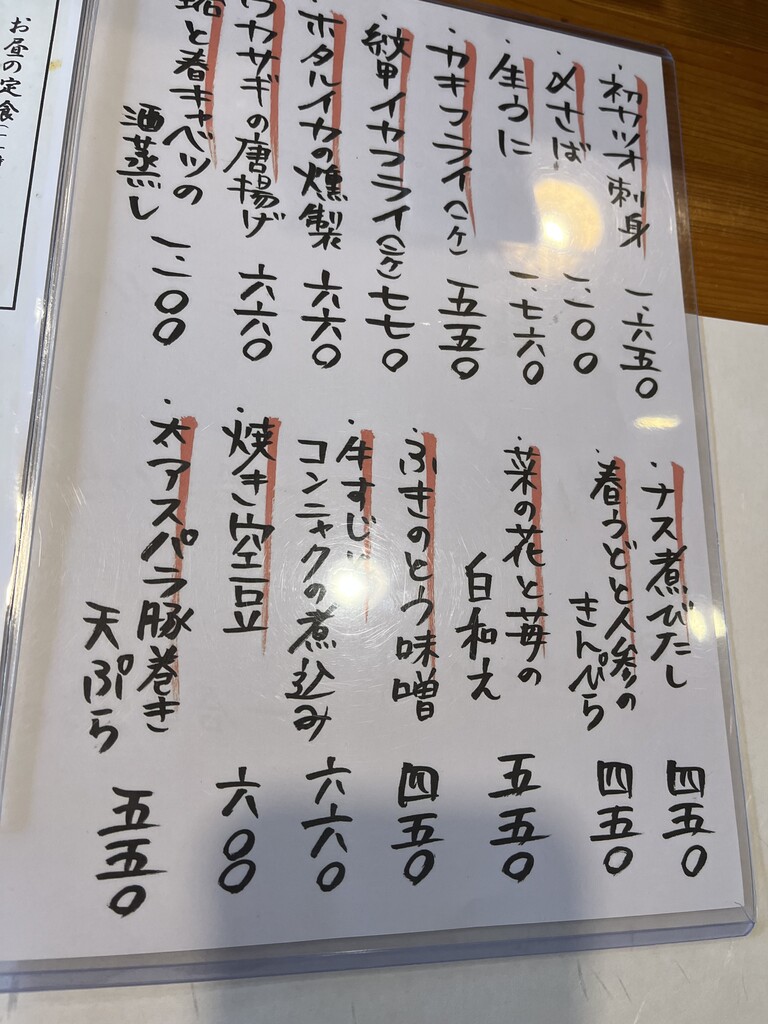 ・初カツオ刺身 一、六五〇
・〆さば 一、一〇〇
・生うに 一、七六〇
・カキフライ(一ケ) 五五〇
・紋甲イカフライ(二ケ) 七七〇
・ホタルイカの燻製 六六〇
ワカサギの唐揚げ 六六〇
と春キャベツの
酒蒸し 一、一〇〇
・ナス煮びたし 四五〇
・春うどと人参の
きんぴら 四五〇
・菜の花と苺の
白和え 五五〇
・ふきのとう味噌 四五〇
・牛すじと
コンニャクの煮込み 六六〇
・焼き空豆 六〇〇
・大アスパラ豚巻き
天ぷら 五五〇
お昼の定食